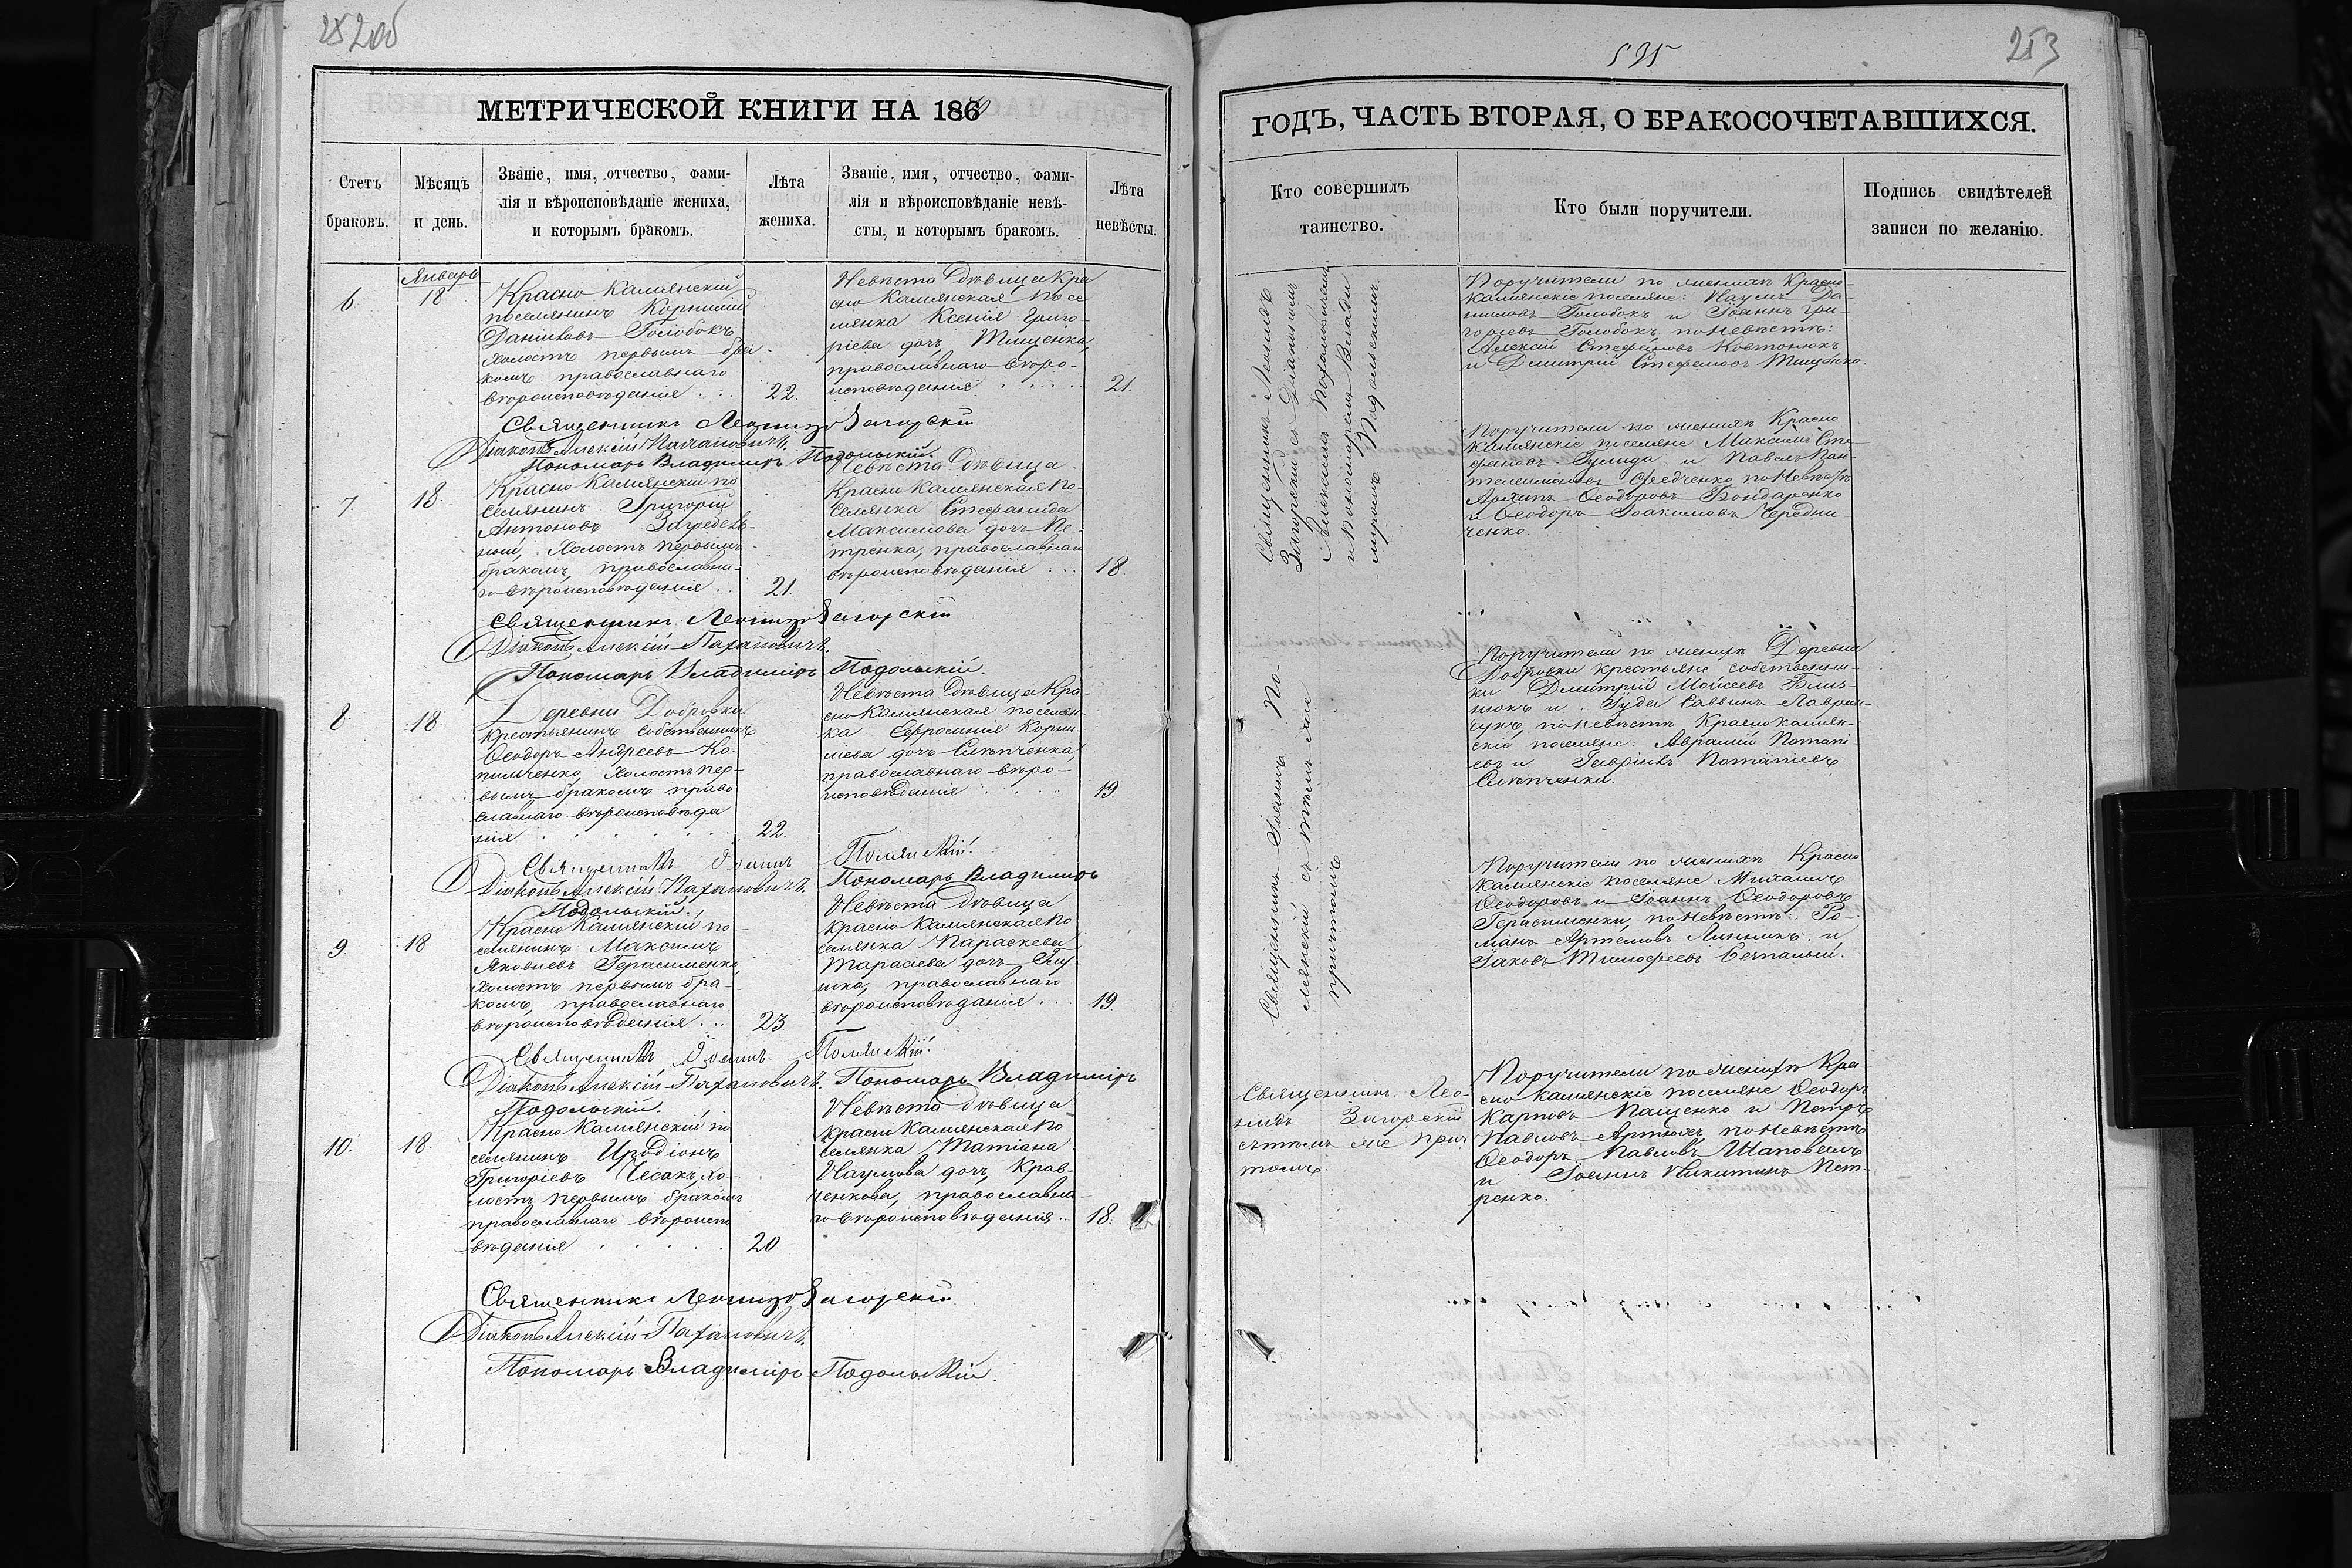 595
253
МЕТРИЧЕСКОЙ КНИГИ НА 186
ГОДЪ, ЧАСТЬ ВТОРАЯ, О БРАКОСОЧЕТАВШИХСЯ.
Стетъ
браковъ.
Мѣсяцъ
и день.
Званіе, имя, отчество, фами-
лія и вѣроисповѣданіе жениха,
и которымъ бракомъ.
Лѣта
жениха.
Званіе, имя, отчество, фами-
лія и вѣроисповѣданіе невѣ-
сты, и которымъ бракомъ.
Лѣта
невѣсты.
Кто совершилъ
таинство.
Кто были поручители.
Подпись свидѣтелей
записи по желанію.
6
Январь
18
Красно Каменскій
поселянинъ Корнилій
Даніиловъ Голобокъ
холостъ первымъ бра-
комъ православнаго
вѣроисповѣданія
22.
Невѣста Дѣвица Кра
сно Каменская посе
лянка Ксенія Григо-
ріева дочь Тищенка,
православнаго вѣро-
исповѣданія
21.
Священникъ Леонидъ
Загорскій съ Діакономъ
Алексѣемъ Пахановичемъ
и Пономаремъ Влади
міромъ Подольскимъ
Поручители по женихѣ Красно-
Каменскіе поселяне: Наумъ Да-
ниловъ Голобокъ и Іоаннъ Гри-
горіевъ Голобокъ, по невѣстѣ:
Алексій Стефановъ Ковтонюкъ
и Димитрій Стефановъ Тищенко.
Священникъ Леонидъ Загорскій
Діаконъ Алексій Пахановичъ.
Пономарь Владиміръ Подольскій.
7.
18.
Красно Каменскій по
селянинъ Григорій
Антоновъ Загребель-
ный, холостъ первымъ
бракомъ, православна-
го вѣроисповѣданія
21.
Невѣста Дѣвица
Красно Каменская по-
селянка Стефанида
Максимова дочь Пе-
тренка, православнаго
вѣроисповѣданія
18
Поручители по женихѣ Красно
Каменскіе поселяне Максимъ Сте-
фановъ Гулида и Павелъ Пан-
телеимоновъ Федченко по невѣстѣ
Архипъ Ѳеодоровъ Бондаренко
и Ѳеодоръ Іоакимовъ Чередни
ченко.
Священникъ Леонидъ Загорскій
Діаконъ Алексій Пахановичъ.
Пономарь Владиміръ Подольскій.
8
18
Деревни Добровки
крестьянинъ собственникъ
Ѳеодоръ Андреевъ Ко-
пильченко, холостъ пер-
вымъ бракомъ право
славнаго вѣроисповѣда
нія
22.
Невѣста Дѣвица Кра-
сно Каменская поселян-
ка Евфросинія Корни-
ліева дочь Слѣпченка,
православнаго вѣро-
исповѣданія
19.
Священникъ Іоаннъ По-
лянскій съ тѣмъ же
причтомъ
Поручители по женихѣ Деревни
Добровки крестьяне собственни-
ки Димитрій Моисеевъ Близ-
нюкъ и Іуда Саввинъ Лаврин-
чукъ, по невѣстѣ Красно Камен-
скіе поселяне: Аврамій Потапі-
евъ и Гавріилъ Потапіевъ
Слѣпченки.
Священникъ Іоаннъ Полянскій.
Діаконъ Алексій Пахановичъ. Пономарь Владиміръ
Подольскій.
9
18
Красно Каменскій по-
селянинъ Максимъ
Яковлевъ Герасименко,
холостъ первымъ бра-
комъ, православнаго
вѣроисповѣданія
23.
Невѣста Дѣвица
Красно Каменская по
селянка Параскева
Тарасіева дочь
православнаго
вѣроисповѣданія
19.
Поручители по женихѣ Красно
Каменскіе поселяне Михаилъ
Ѳеодоровъ и Іоаннъ Ѳеодоровъ
Герасименки, по невѣстѣ: Ро-
манъ Артемовъ Линникъ и
Іаковъ Тимофеевъ Безпалый.
Священникъ Іоаннъ Полянскій.
Діаконъ Алексій Пахановичъ. Пономарь Владиміръ
Подольскій.
10.
18.
Красно Каменскій по
селянинъ Иродіонъ
Григоріевъ Чесакъ, хо-
лостъ первымъ бракомъ
православнаго вѣроиспо
вѣданія
20.
Невѣста Дѣвица
Красно Каменская по
селянка Татіана
Наумова дочь, Крав-
ченкова, православна-
го вѣроисповѣданія
18.
Священникъ Лео-
нидъ Загорскій
съ тѣмъ же прич
томъ.
Поручители по женихѣ Кра-
сно Каменскіе поселяне Ѳеодоръ
Карповъ Пащенко и Петръ
Павловъ Артюхъ, по невѣстѣ
Ѳеодоръ Павловъ Шаповалъ
и Іоаннъ Никитинъ Пет-
ренко.
Священникъ Леонидъ Загорскій
Діаконъ Алексій Пахановичъ.
Пономарь Владиміръ Подольскій.